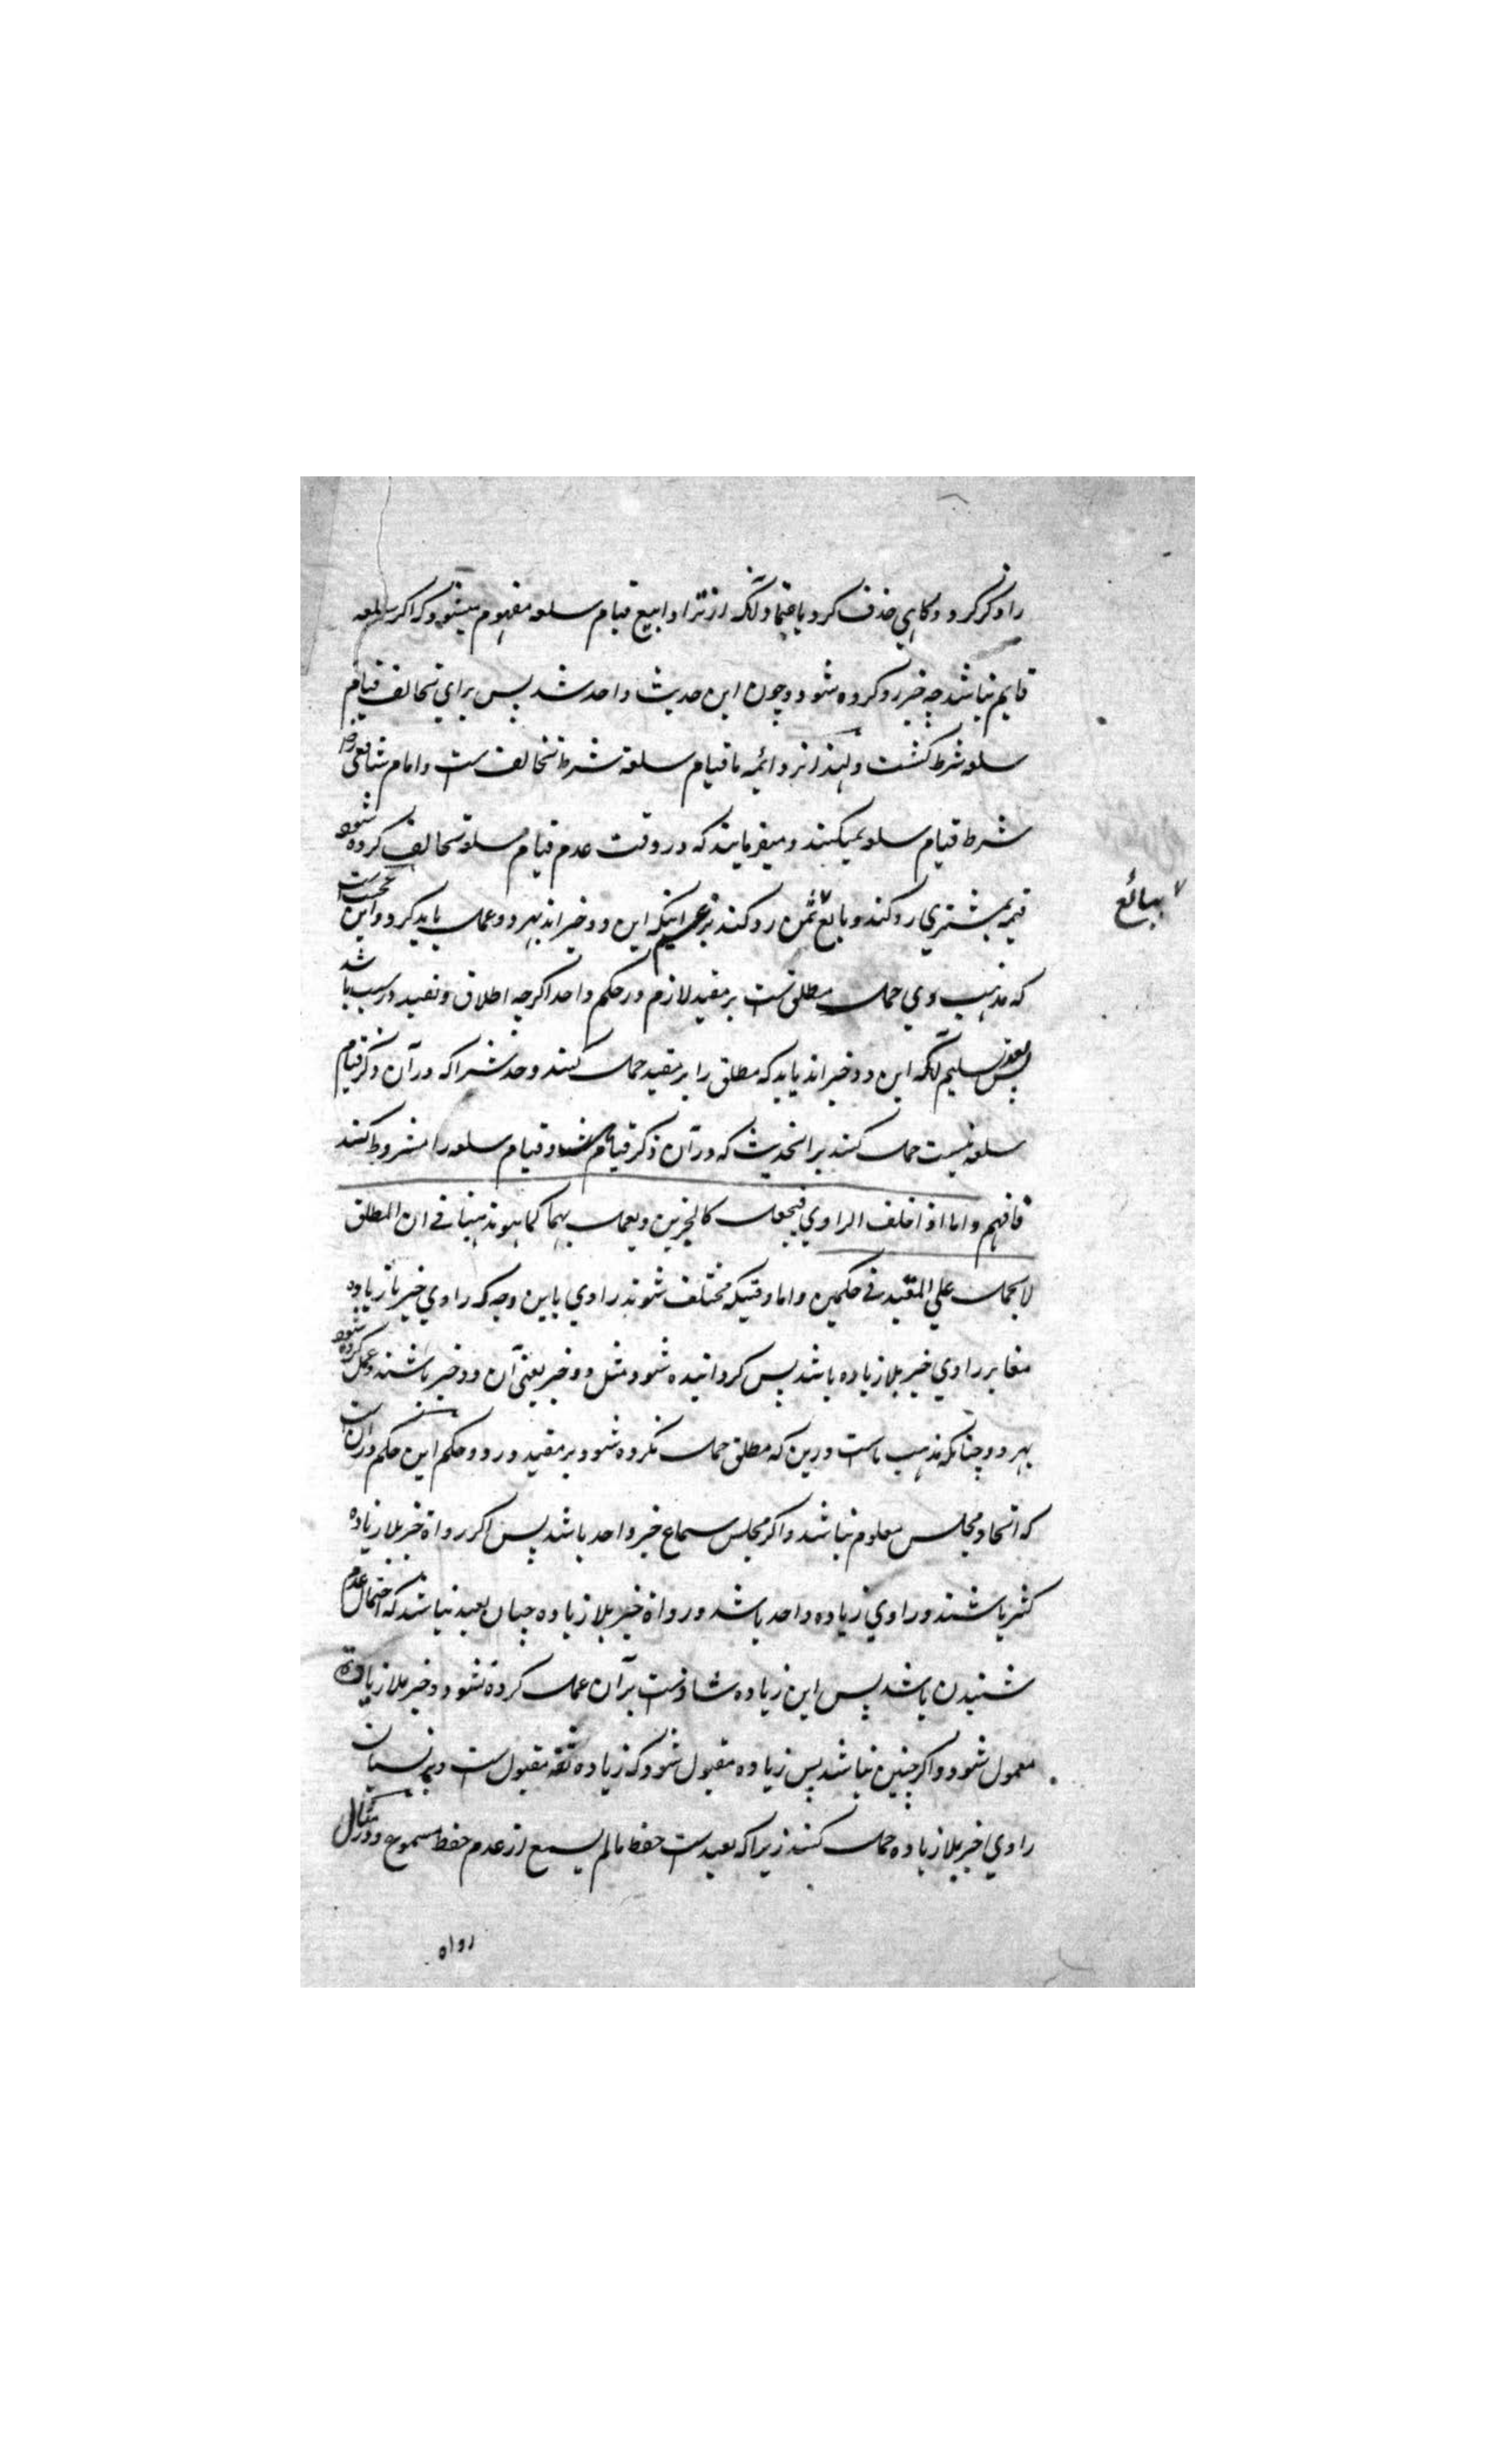 را ذکر کرد و گاهی حذف کرد باعتماد آنکه از ترادا البیع قیام سلعه مفهوم میشود که اگر سلعه
قایم نباشد چه خبر رد کرده شود و چون این حدیث واحد شد پس برای تحالف قیام
سلعه شرط گشت و لهذا نزد ائمه ما قیام سلعة شرط تحالف ست و امام شافعی رض
شرط قیام سلعه نمیکنند و میفرمایند که در وقت عدم قیام سلعة تحالف کرده شود
قیمه مشتری رد کند و بائع ثمن رد کند بزعم اینکه این دو خبر اند بهر دو عمل باید کرد و این عجب است
که مذهب وی حمل مطلق ست بر مقید لازم در حکم واحد اگرچه اطلاق و تقیید در سبب باشد
پس بعد تسلیم آنکه این دو خبر اند باید که مطلق را بر مقید حمل کنند و حدیثیرا که در آن ذکر قیام
سلعه نیست حمل کنند بر انحدیث که در آن ذکر قیام شد و قیام سلعه را مشروط کنند
فافهم و اما اذا اختلف الراوی فیجعل کالخبرین و یعمل بهما کما هو مذهبنا فی ان المطلق
لا یحمل علی المقید فی حکمین و اما وقتیکه مختلف شوند راوی باین وجه که راوی خبر با زیاده
مغایر راوی خبر بلا زیاده باشد پس گردانیده شود مثل دو خبر یعنی آن دو خبر باشند و عمل کرده شود
بهر دو چنانکه مذهب ماست درین که مطلق حمل نکرده شود بر مقید در دو حکم این حکم در ان ست
که اتحاد مجلس معلوم نباشد و اگر مجلس سماع خبر واحد باشد پس اگر رواة خبر بلا زیاده
کثیر باشند و راوی زیاده واحد باشد و رواة خبر بلا زیاده چنان بعید نباشد که احتمال عدم
شنیدن باشد پس این زیاده شاذ ست بر آن عمل کرده نشود و خبر بلا زیادة
معمول شود و اگر چنین نباشد پس زیاده مقبول شود که زیاده ثقه مقبول ست و بر نسیان
راوی خبر بلا زیاده حمل کنند زیرا که بعید ست حفظ مالم یسمع از عدم حفظ مسموع و در مثال
ببائع
رواه